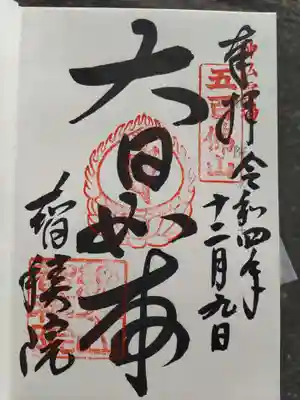 奉拝
令和四年
十二月九日
五百佛山
大日如来
智積院